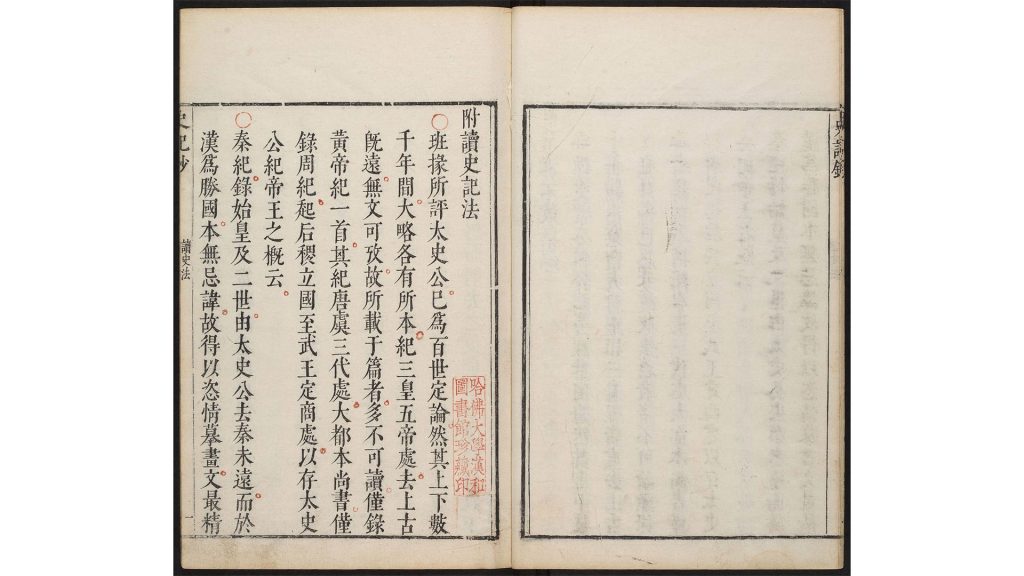 附讀史記法
班掾所評太史公已爲百世定論然其上下數
千年間大略各有所本紀三皇五帝處去上古
旣遠無文可攷故所載于篇者多不可讀僅錄
黃帝紀一首其紀唐虞三代處大都本尚書僅
錄周紀起后稷立國至武王定商處以存太史
公紀帝王之概云
秦紀錄始皇及二世由太史公去秦未遠而於
漢爲勝國本無忌諱故得以恣情摹畫文最精
史記抄
讀史法
一
哈佛大學漢和
圖書館珍藏印